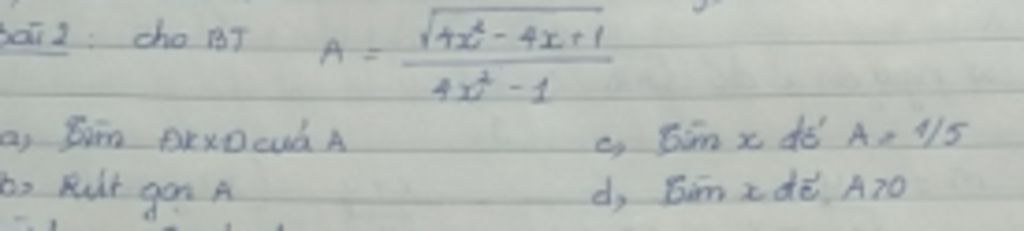 Bài 2: cho BT A = √(4x² - 4x + 1) / (4x² - 1)
a, Tìm ĐKXĐ của A
b, Rút gọn A
c, Tìm x để A = 1/5
d, Tìm x để A>0